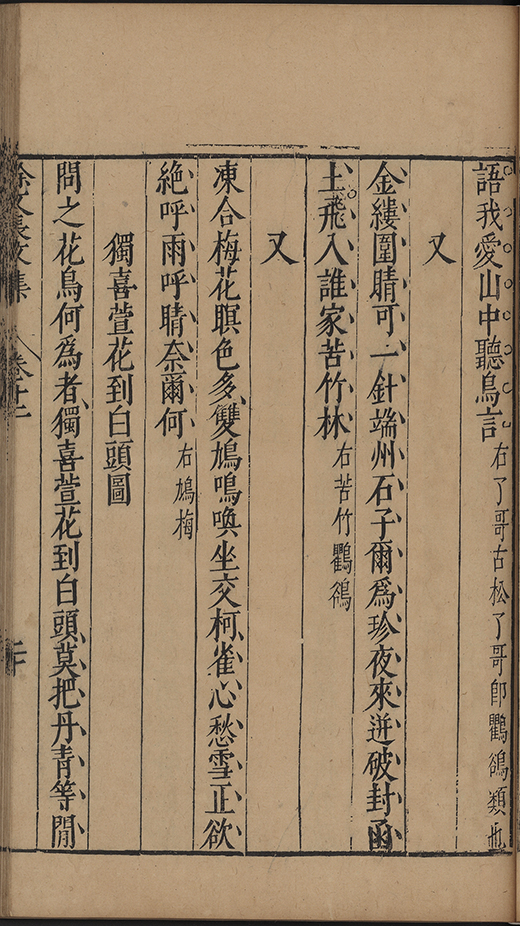 語我愛山中聽鳥言右了哥古松了哥卽鸜鵒類也
又
金縷圍睛可一針端州石子爾為珍夜來迸破封函
土飛入誰家苦竹林右苦竹鸜鵒
又
凍合梅花暝色多雙鳩鳴喚坐交柯雀心愁雪正欲
絶呼雨呼晴奈爾何右鳩梅
獨喜萱花到白頭圖
問之花鳥何為者獨喜萱花到白頭莫把丹青等閒
徐文長文集 卷十二 二十